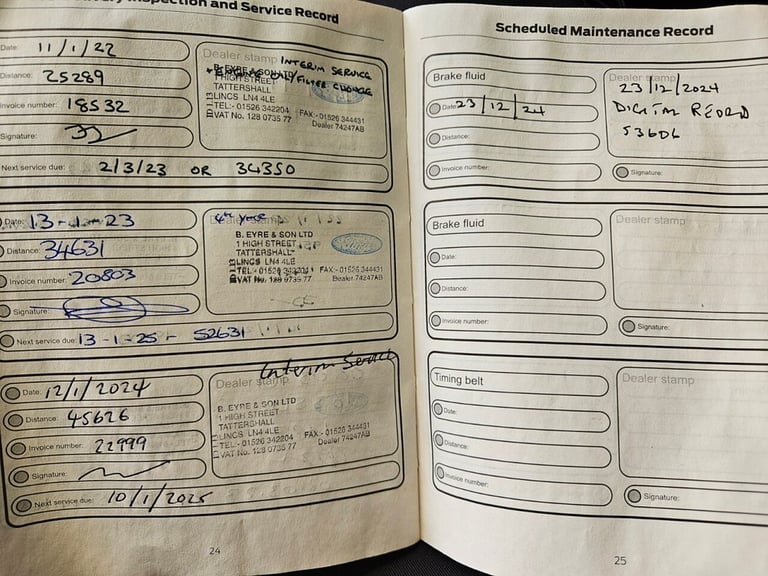 Inspection and Service Record
Date: 11/1/22
Distance: 25289
Invoice number: 18532
Signature:
Dealer stamp INTERIM SERVICE
+ ENGINE OIL/FILTER CHANGE
B. EYRE & SON LTD
1 HIGH STREET
TATTERSHALL
LINCS LN4 4LE
TEL:- 01526 342204 FAX:- 01526 344431
VAT No. 128 0735 77 Dealer 74247AB
Next service due: 2/3/23 OR 34350
Date: 13-1-23
Distance: 34631
Invoice number: 20803
Signature:
4th year
Dealer stamp
B. EYRE & SON LTD
1 HIGH STREET
TATTERSHALL
LINCS LN4 4LE
TEL:- 01526 342204 FAX:- 01526 344431
VAT No. 128 0735 77 Dealer 74247AB
Next service due: 13-1-25 - 52631
Date: 12/1/2024
Distance: 45626
Invoice number: 22999
Signature:
Interim Service
Dealer stamp
B. EYRE & SON LTD
1 HIGH STREET
TATTERSHALL
LINCS LN4 4LE
TEL:- 01526 342204 FAX:- 01526 344431
VAT No. 128 0735 77 Dealer 74247AB
Next service due: 10/1/2025
24
Scheduled Maintenance Record
Brake fluid
Date: 23/12/24
Distance:
Invoice number:
Dealer stamp
23/12/2024
DIGITAL RECORD
53606
Signature:
Brake fluid
Date:
Distance:
Invoice number:
Dealer stamp
Signature:
Timing belt
Date:
Distance:
Invoice number:
Dealer stamp
Signature:
25